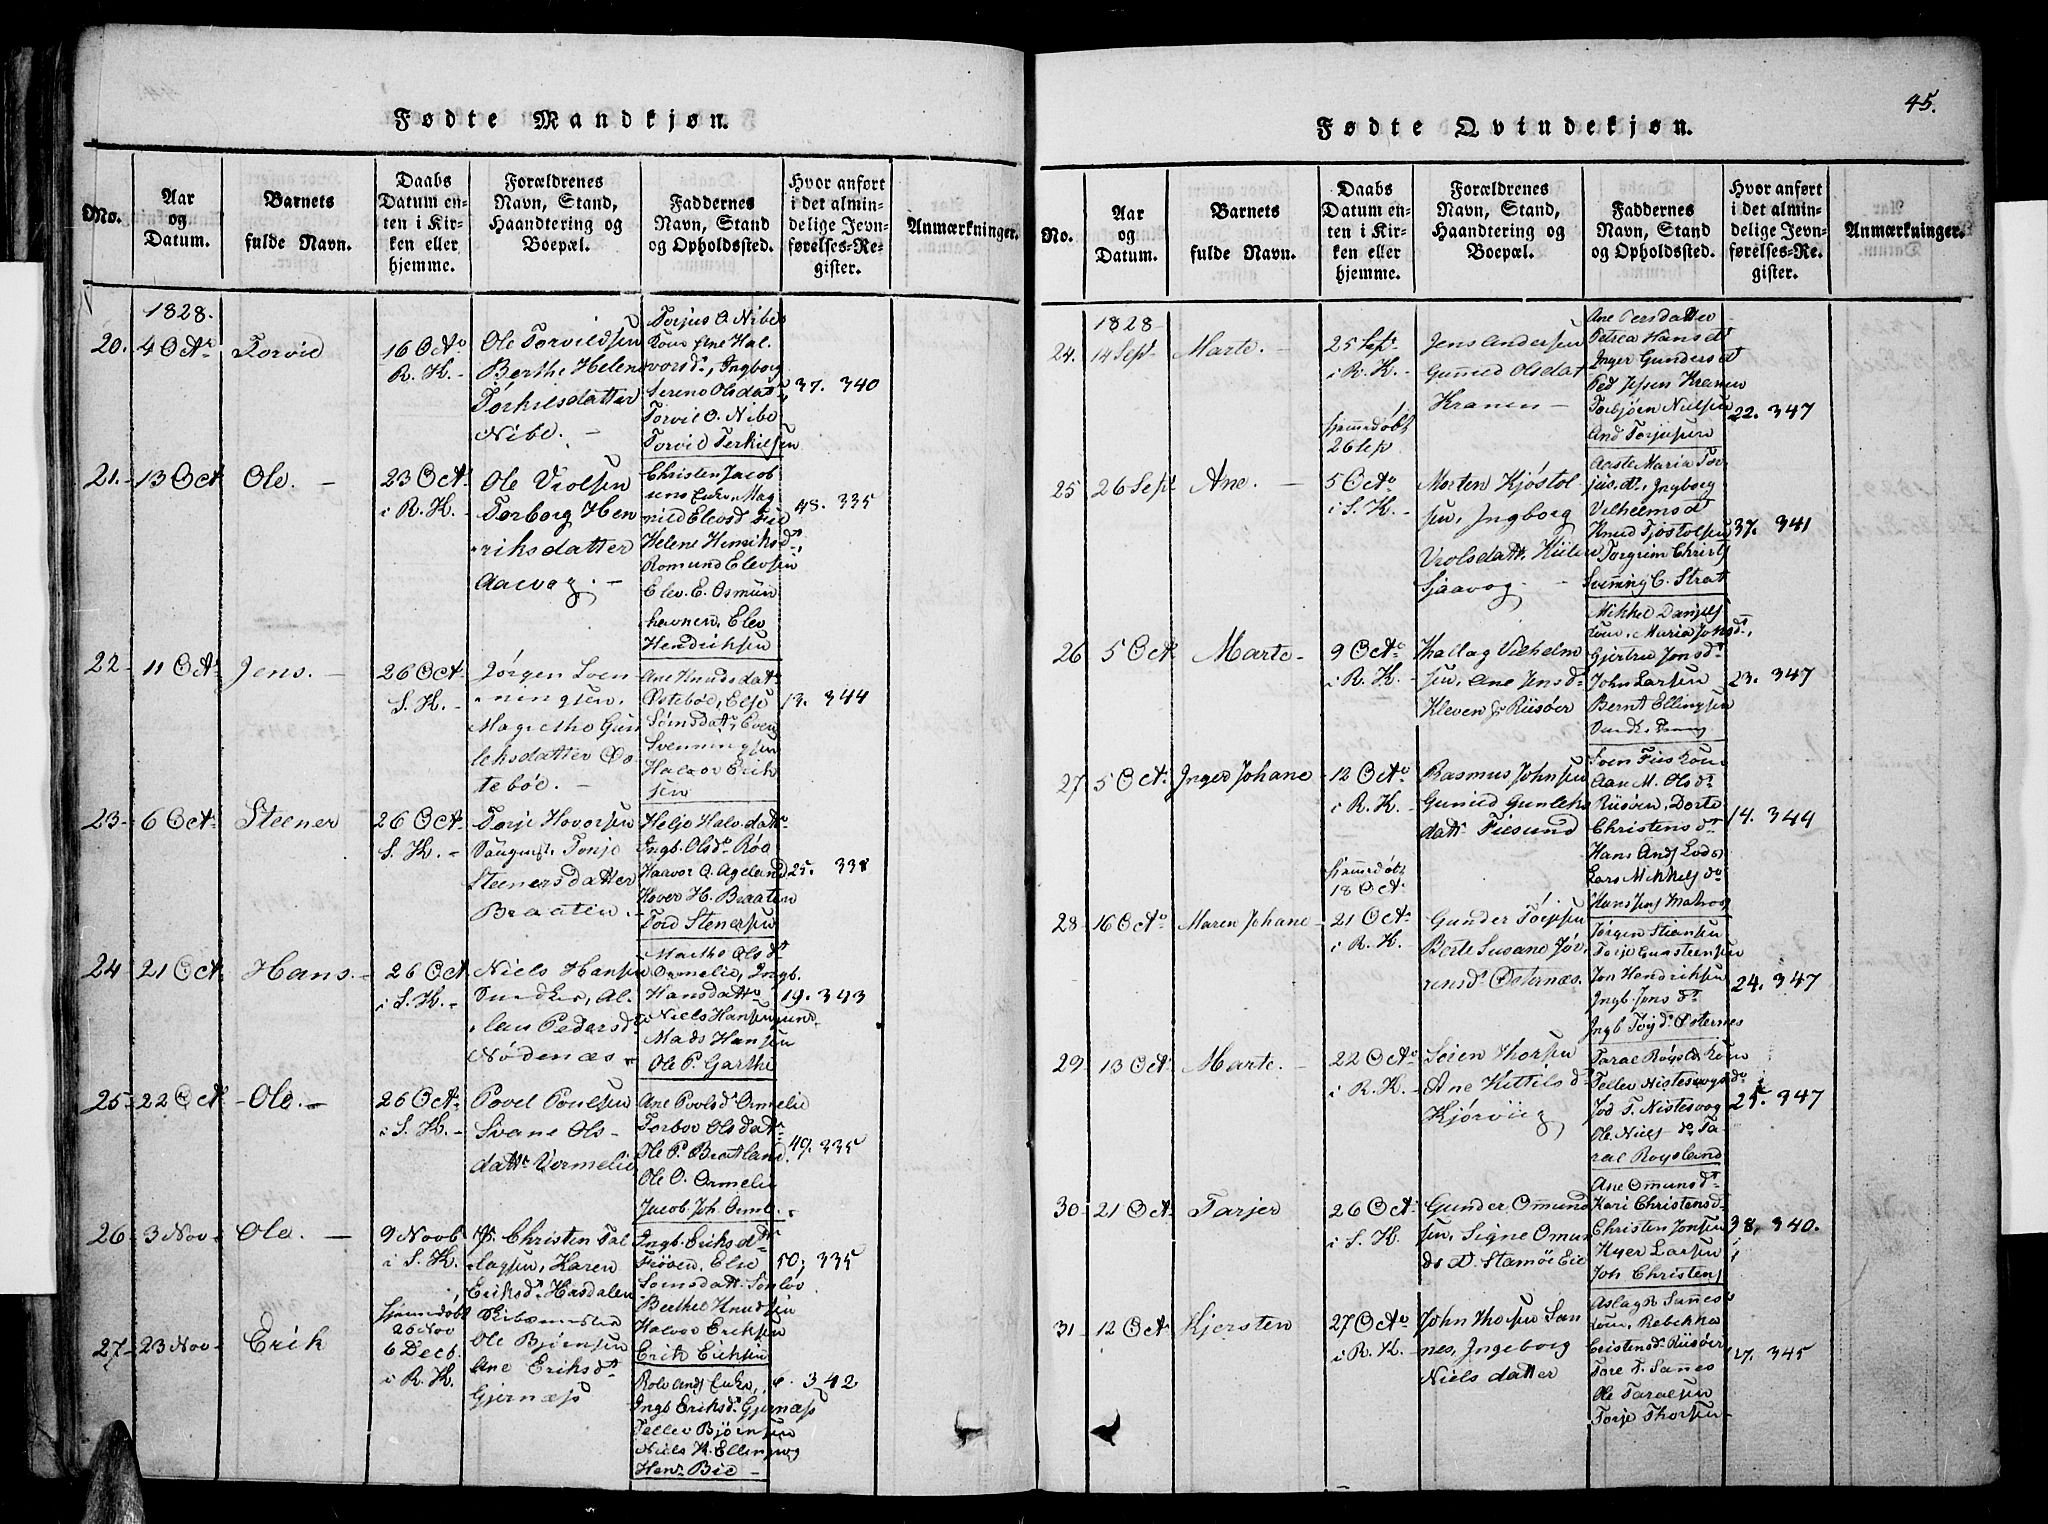 45.
Fødte Mandkjøn.
No.
Aar og Datum.
Barnets fulde Navn.
Daabs Datum enten i Kirken eller hjemme.
Forældrenes Navn, Stand, Haandtering og Boepæl.
Faddernes Navn, Stand og Opholdssted.
Hvor anført i det almindelige Jevnførelses-Register.
Anmærkninger.
1828.
20. 4 Octr Torvid
16 Octo
R. K. -
Ole Torvildsen
Berthe Helene
Torkilsdatter
Nibe. -
Torjus O Nibes
Kone Ane Hal
vorsd., Ingborg
Serene Olsdat
Torvil O. Nibe
Torvid Terkilsen
37. 340
21. 13 Oct Ole. -
23 Oct.
i R. K. -
Ole Vrolsen
Torborg Hen
riksdatter
Aaevog. -
Christen Jacob
sens Enke, Mag
nild Elevsd
Helene Henriksd
Romund Elevsen
Elev. E. Osmun
havnen, Elev
Hendriksen
48. 335
22 - 11 Octr Jens. -
26 Oct.
S. K. -
Jørgen Sven
ningsen.
Magrethe Gun
leksdatter Øs
tebøe. -
Ane Knudsdatr
Østebøe, Else
Sørnsdatr, Even
Svenningsen
Halvor Erik
sen
13. 344
23 - 6 Octr Steener
26 Oct.
S. K. -
Terje Hovorsen
Tonje
Steenersdatter
Braaten. -
Helje Halv.datr
Ingb. Olsdr Roe
Haavor O. Ageland
Hover H. Braaten
Tord Stenersen
25. 338
24 - 21 Oct. Hans. -
26 Oct
i S. K. -
Niels Hansen
len Pedersd.
Nødenæs -
Marthe Olsdr
Ormelie, Ingb.
Hansdatr
Niels Hansen
Mads Hansen
Ole P. Garthe
19. 343
25 - 22 Oct. - Ole. -
26 Oct.
i S. K. -
Povel Poulsen
Svane Ols-
datr Vormelie
Ane Povlsdr Ormelie
Torbor Olsdatr
Ole P. Bratland
Ole O. Ormelie
Jacob Joh. Orml.
49. 335
26 - 3 Nov - Ole. -
9 Novb
i S. K.
Christen Tal
laksen, Karen
Eriksdr Hasdalen
Ingb. Eriksdr
Frøven, Else
Sørnsdatr.
Berthe Knudsen
Halvor Eriksen
Erik Eriksen
50; 335
hjemedøbt
25 Nov
27 - 23 Nov - Erik
6 Decb.
i R. K.
Ole Bjørnsen
Ane Eriksdr
Gjernæs
Rolv Ands Enke,
Ingb Eriksdr Gjernæs
Tellev Bjørnsen
Niels K. Ellingvog
Henr. Bie -
6. 342
Fødte Qvindekjøn.
No.
Aar og Datum.
Barnets fulde Navn.
Daabs Datum enten i Kirken eller hjemme.
Forældrenes Navn, Stand, Haandtering og Boepæl.
Faddernes Navn, Stand og Opholdssted.
Hvor anført i det almindelige Jevnførelses-Register.
Anmærkninger.
1828
24. 14 Sepr Marte. -
25 Sepr
i R. K. -
Jens Andersen
Gunild Olsdat
Kranen -
Ane Persdatter
Petrea Hansdr
Inger Gundersdr
Ped Jepsen Kranen
Torbjørn Nielsen
And Torjusen
22. 347
hjemedøbt
26 Sep
25 26 Sepr Ane. -
5 Octo
i S. K. -
Morten Kjøstol
sen, Ingborg
Vrolsdatr. Kiilen
Sjaavog -
Aaste Maria Tor
jus.dr, Ingborg
Vilhelmsdr
Knud Tjøstolsen
Torgrim Christs
Svenning C. Strat
37. 341
26 5 Oct. Marte -
9 Octo
i R. K. -
Hallag Vilhelm
sen, Ane Jensdr
Kleven fr Riisøer
Mikkel Daniels
Kone, Maria Johsdr,
Gjertru Jonsdr
John Larsen
Bernt Ellingsen
23. 347
27 5 Oct. Inger Johane -
12 Octo
i R. K. -
Rasmus Johnsen
Gunild Gunleks
datr Fiesund
Sven Fies Kone
Aan M. Olsdr
Riisøen, Dorte
Christensdr
Hans Ands Lods
Lars Mikkels do
Hans Jens Mabvog
14. 344
hjemedøbt
18 Oct.
28 16 Octo Maren Johane -
21 Octr
i R. K.
Gunder Torjesen
Berte Susane Jør
rensdr Østernæs.
Jørgen Stiansen
Torje Gunsteensen
Jon Hendriksen
Ingb. Jons dr
Ingb Torjdr Østernes
24. 347
29 13 Oct. Marte. -
22 Octo
i R. K. -
Seien Thorsen
Ane Kittilsdr
Kjørviig
Taral Røysl. Kone
Tellev Nistesvogs do
Jod T. Nistesvog
Ole Niels do Ta
ral Roysland
25. 347
30 - 21 Oct. Tarjer
26 Oct.
i S. K.
Gunder Omund
sen, Signe Omun
ds D. Stamsøe Eie
Ane Omunsdr
Kari Christensdr
Christen Jonsen
Kyer Larsen
Joh Christens
38, 340.
31 - 12 Oct. Kjersten
27 Octo
i R. K. -
John Thorsen San
nes, Ingeborg
Nielsdatter
Aslag R Sannes
Kone, Rebekka
Cristensdr Riisøer
Tore T. Sanes
Ole Taraldsen
Torje Thorsen -
17. 345